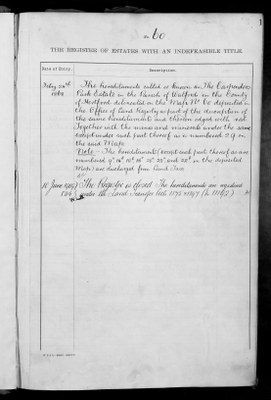 1
No 60
THE REGISTER OF ESTATES WITH AN INDEFEASIBLE TITLE.
Date of Entry. Description.
The hereditaments called or known as The
Park Estate in the Parish of Watford in the County
of Hertford delineated on the Map No 60 deposited in
the Office of Land Registry as part of the description of
the same hereditaments and thereon edged with red
Together with the mines and minerals under the same
except under such part thereof as is numbered 29 on
the said Map
Note The hereditaments except such part thereof as are
numbered in the deposited
Map are discharged from Land Tax
10 June The Register is closed The hereditaments are registered
under the Land Transfer Acts 1875 & 1897